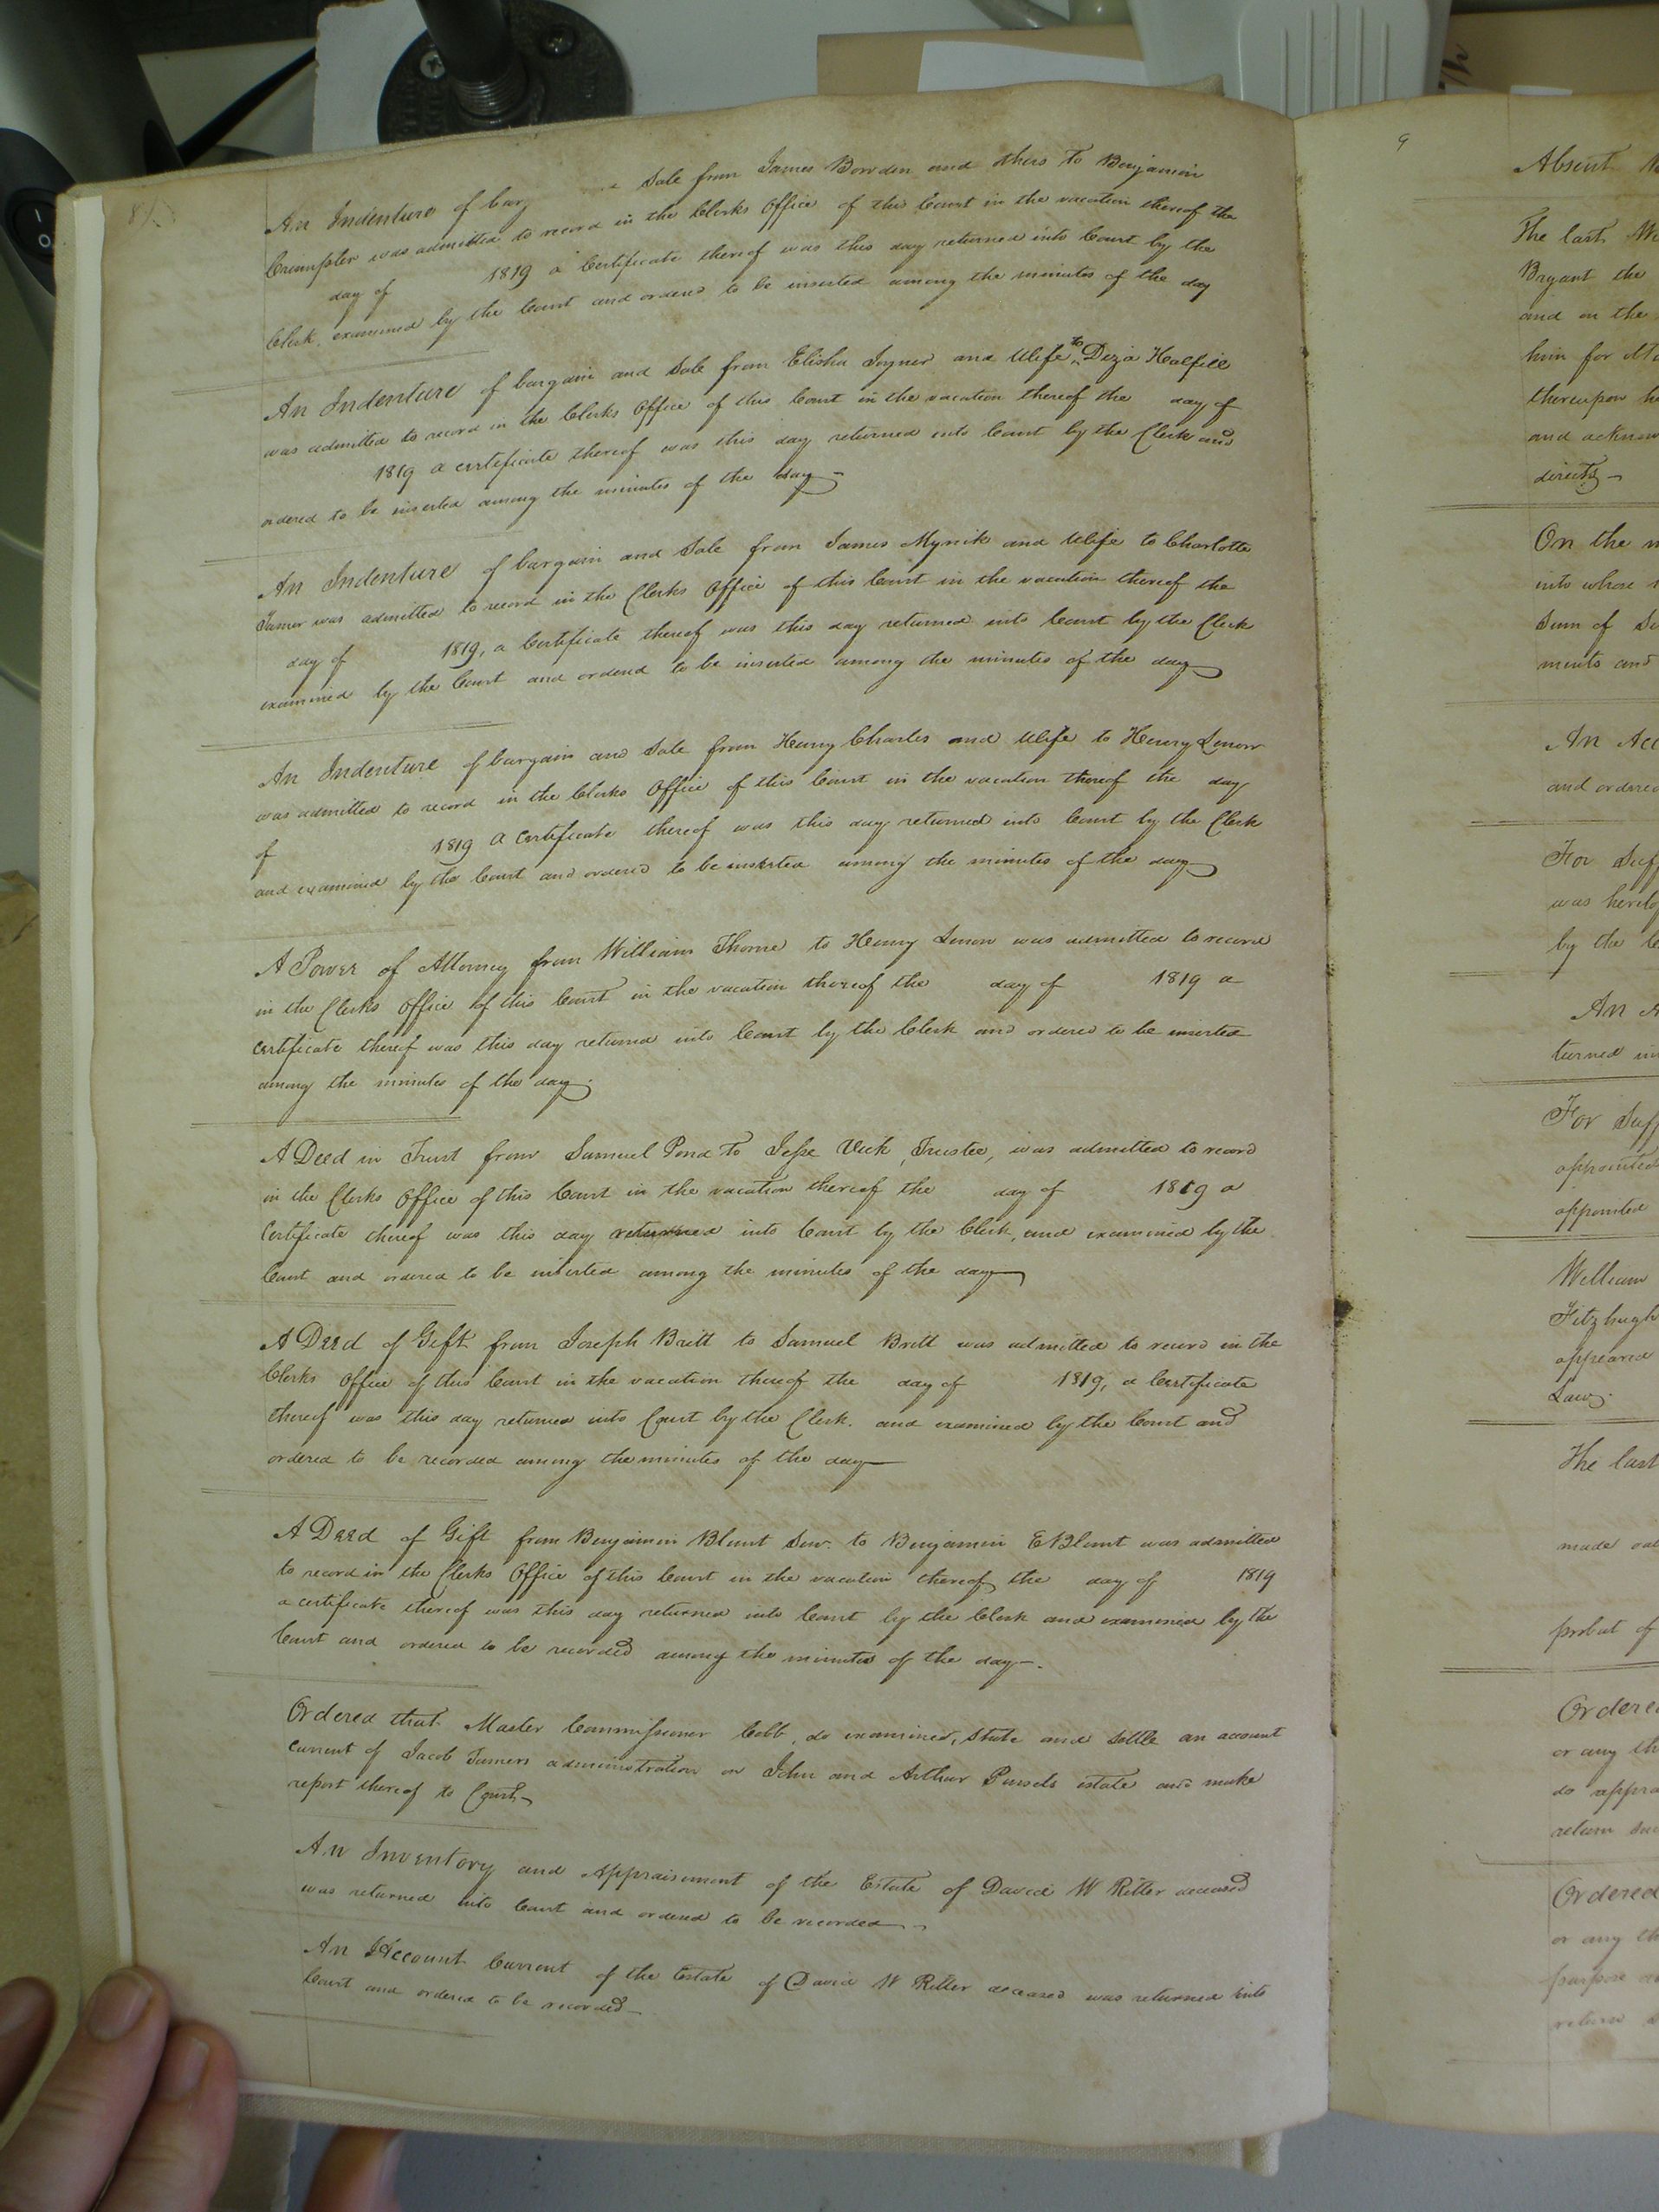 8
An Indenture of barg Sale from James Bowden and others to Benjamin
Crumpler was admitted to record in the Clerks Office of this Court in the vacation thereof the
day of 1819 a Certificate thereof was this day returned into Court by the
Clerk, examined by the Court and ordered to be inserted among the minutes of the day
An Indenture of bargain and Sale from Elisha Joyner and Wife to Diza Halfill
was admitted to record in the Clerks Office of this Court in the vacation thereof the day of
1819 a certificate thereof was this day returned into Court by the Clerk and
ordered to be inserted among the minutes of the day
An Indenture of bargain and Sale from James Myrick and Wife to Charlotte
Turner was admitted to record in the Clerks Office of this Court in the vacation thereof the
day of 1819, a Certificate thereof was this day returned into Court by the Clerk
examined by the Court and ordered to be inserted among the minutes of the day
An Indenture of bargain and Sale from Henry Charles and Wife to Henry Lenow
was admitted to record in the Clerks Office of this Court in the vacation thereof the day
of 1819 a Certificate thereof was this day returned into Court by the Clerk
and examined by the Court and ordered to be inserted among the minutes of the day
A Power of Attorney from William Thorne to Henry Lenow was admitted to record
in the Clerks Office of this Court in the vacation thereof the day of 1819 a
Certificate thereof was this day returned into Court by the Clerk and ordered to be inserted
among the minutes of the day.
A Deed in Trust from Samuel Pond to Jesse Vick, Trustee, was admitted to record
in the Clerks Office of this Court in the vacation thereof the day of 1819 a
Certificate thereof was this day returned into Court by the Clerk, and examined by the
Court and ordered to be inserted among the minutes of the day
A Deed of Gift from Joseph Britt to Samuel Britt was admitted to record in the
Clerks Office of this Court in the vacation thereof the day of 1819, a Certificate
thereof was this day returned into Court by the Clerk. and examined by the Court and
ordered to be recorded among the minutes of the day
A Deed of Gift from Benjamin Blunt Senr. to Benjamin E Blunt was admitted
to record in the Clerks Office of this Court in the vacation thereof the day of 1819
a certificate thereof was this day returned into Court by the Clerk and examined by the
Court and ordered to be recorded among the minutes of the day.
Ordered that Master Commissioner Cobb, do examined, State and Settle an account
current of Jacob Turners administration on John and Arthur Pursels estate and make
report thereof to Court
An Inventory and Appraisement of the Estate of David W Ritter deceased
was returned into Court and ordered to be recorded
An Account Current of the Estate of David W Ritter deceased was returned into
Court and ordered to be recorded
9
Absent
The last
Bryant the
and on the
him for
thereupon
and
directs
On the
into whose
Sum of
ments and
An
and ordered
For
was
by the
An
turned
For
appointed
appointed
William
Fitzhugh
appeared
Law.
The last
made
probat of
Ordered
or any
do
return
Ordered
or any
purpose
return